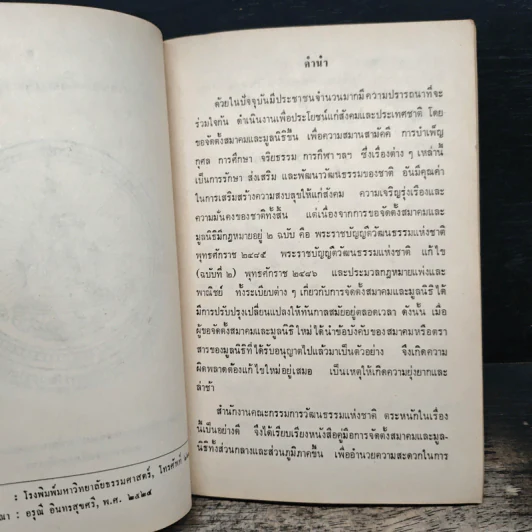 : โรงพิมพ์มหาวิทยาลัยธรรมศาสตร์, โทรศัพท์
ณา : อรุณี อินทรสุขศรี, พ.ศ. ๒๕๒๔
คำนำ
ด้วยในปัจจุบันมีประชาชนจำนวนมากมีความปรารถนาที่จะ
ร่วมใจกัน ดำเนินงานเพื่อประโยชน์แก่สังคมและประเทศชาติ โดย
ขอจัดตั้งสมาคมและมูลนิธิขึ้น เพื่อความสมานสามัคคี การบำเพ็ญ
กุศล การศึกษา จริยธรรม การกีฬา ฯลฯ ซึ่งเรื่องต่าง ๆ เหล่านี้
เป็นการรักษา ส่งเสริม และพัฒนาวัฒนธรรมของชาติ อันมีคุณค่า
ในการเสริมสร้างความสงบสุขให้แก่สังคม ความเจริญรุ่งเรืองและ
ความมั่นคงของชาติทั้งสิ้น แต่เนื่องจากการขอจัดตั้งสมาคมและ
มูลนิธิมีกฎหมายอยู่ ๒ ฉบับ คือ พระราชบัญญัติวัฒนธรรมแห่งชาติ
พุทธศักราช ๒๔๘๕ พระราชบัญญัติวัฒนธรรมแห่งชาติ แก้ไข
(ฉบับที่ ๒) พุทธศักราช ๒๔๘๖ และประมวลกฎหมายแพ่งและ
พาณิชย์ ทั้งระเบียบต่าง ๆ เกี่ยวกับการจัดตั้งสมาคมและมูลนิธิ ได้
มีการปรับปรุงเปลี่ยนแปลงให้ทันกาลสมัยอยู่ตลอดเวลา ดังนั้น เมื่อ
ผู้ขอจัดตั้งสมาคมและมูลนิธิใหม่ได้นำข้อบังคับของสมาคมหรือตรา
สารของมูลนิธิที่ได้รับอนุญาตไปแล้วมาเป็นตัวอย่าง จึงเกิดความ
ผิดพลาดต้องแก้ไขใหม่อยู่เสมอ เป็นเหตุให้เกิดความยุ่งยากและ
ล่าช้า
สำนักงานคณะกรรมการวัฒนธรรมแห่งชาติ ตระหนักในเรื่อง
นี้เป็นอย่างดี จึงได้เรียบเรียงหนังสือคู่มือการจัดตั้งสมาคมและมูล-
นิธิทั้งส่วนกลางและส่วนภูมิภาคขึ้น เพื่ออำนวยความสะดวกในการ